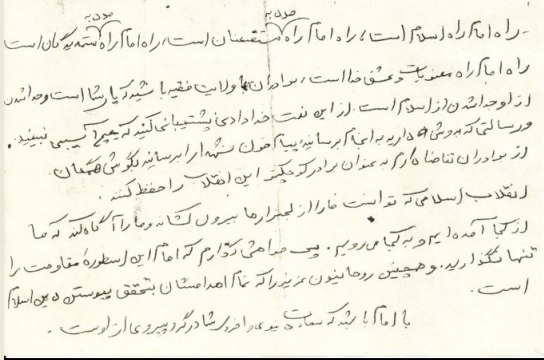 صدمه صدمه
راه امام راه اسلام است، راه امام راه مستضعفان است، راه امام راه ستمدیدگان است
راه امام راه معنویات و عشق خدا است، برادران با ولایت فقیه باشید که یار شما است و جدا شدن
از او جدا شدن از اسلام است. از این نعمت خدادادی پشتیبانی کنید که هیچ آسیبی نبیند.
و رسالتی که به دوش دارید به انجام برسانید پیام خون شهدا را برسانید بگوش همگان
از برادران تقاضا دارم به عنوان برادر کوچکتر این انقلاب را حفظ کنند.
انقلاب اسلامی که توانست ما را از لجنزارها بیرون بکشاند و ما را آگاه کند که ما
از کجا آمده ایم و به کجا می رویم. پس خواهشی که دارم که امام این اسطوره مقاومت را
تنها نگذارید. و همچنین روحانیون عزیز را که تمام اهدافشان بتحقق پیوستن دین اسلام
است.
با امام باشید که سعادت دنیوی و اخروی شما در گرو پیروی از اوست.